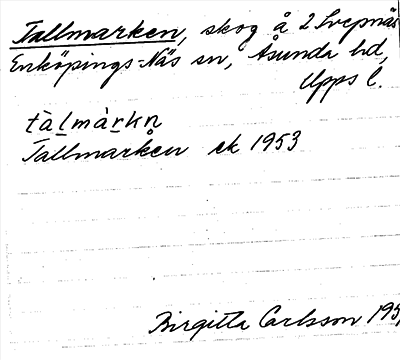 Tallmarken, skog å 2 Svepnäs
Enköpings-Näs sn, Åsunda hd,
Upps l.
tàlmàrkn
Tallmarken ek 1953
Birgitta Carlsson 195